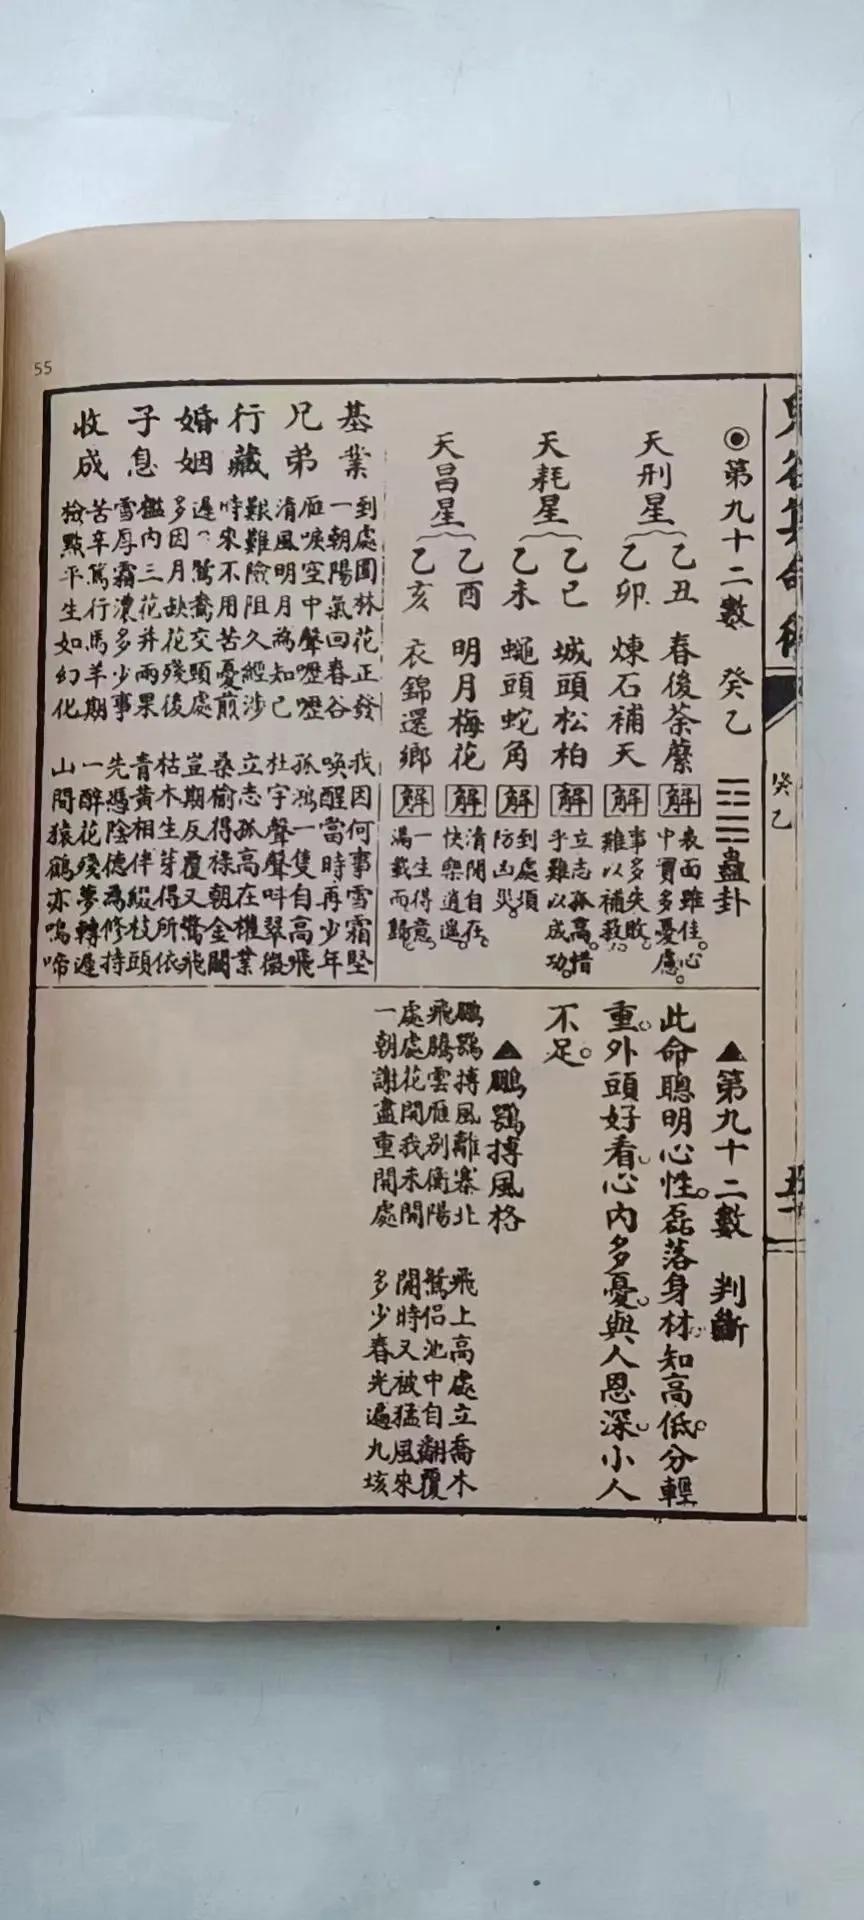 55
癸乙
◉第九十二數　癸乙　䷑蠱卦
天刑星
乙丑　春後荼蘼　解　表面雖佳。心中實多憂慮。
乙卯　煉石補天　解　事多失敗。難以補救。
天耗星
乙巳　城頭松柏　解　立志孤高。惜乎難以成功。
乙未　蠅頭蛇角　解　到處須防凶災。
天昌星
乙酉　明月梅花　解　清閒自在。快樂逍遙。
乙亥　衣錦還鄉　解　一生得意。滿載而歸。
基業
到處園林花正發　我因何事雪霜堅
一朝陽氣回春谷　喚醒當時再少年
兄弟
雁唳空中聲嚦嚦　孤鴻一隻自高飛
清風明月為知己　杜宇聲聲叫翠微
行藏
艱難險阻久經涉　立志孤高在權業
時來不用苦憂煎　桑榆得祿朝金闕
婚姻
遲遲鴛鴦交頸處　豈期反覆又驚飛
多因月缺花殘後　枯木生芽得所依
子息
檻內三花并兩果　青黃相伴綴枝頭
雪厚霜濃多少事　先憑陰德為修持
收成
苦辛篤行馬羊期　一醉花殘夢轉遲
檢點平生如幻化　山間猿鶴亦鳴啼
▲第九十二數　判斷
此命聰明心性。磊落身材。知高低。分輕
重。外頭好看。心內多憂。與人恩深。小人
不足。
▲鵬鶚摶風格
鵬鶚摶風離塞北　飛上高處立喬木
飛騰雲雁別衡陽　鴛侶池中自翻覆
處處花開我未開　開時又被猛風來
一朝謝盡重開處　多少春光遍九垓